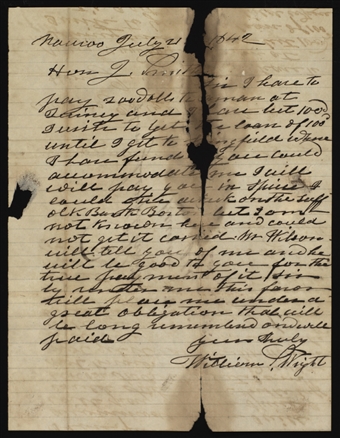 Nauvoo July 21 1842
Hon J. Smith Sir I have to
pay 200 dolls to a man at
Quincy and have but 100d
I wish to get the loan of 100d
until I get to Springfield where
I have funds If you could
accommodate me I will
will pay you in Specie I
could give a check on the Suff
olk Bank Boston but I am
not known here and could
not get it cashed Mr Wilson
will tell you of me and he
will be good to you for the
true payment of it Sir
by me this favor
will place me under a
great obligation that will
be long remembered and well
paid Yours truly
William Wright